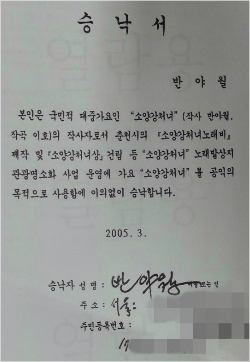 승낙서
반야월
본인은 국민적 대중가요인 "소양강처녀" (작사 반야월,
작곡 이호)의 작사자로서 춘천시의 『소양강처녀노래비』
제작 및 『소양강처녀상』 건립 등 "소양강처녀" 노래발상지
관광명소화 사업 운영에 가요 "소양강처녀" 를 공익의
목적으로 사용함에 이의없이 승낙합니다.
2005. 3.
승낙자 성명 : 반야월
주소 : 서울
주민등록번호 :